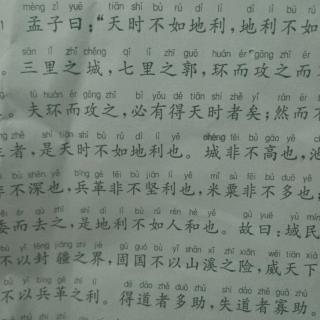 mèng zǐ yuē tiān shí bù rú dì lì dì lì bù rú
孟子曰：“天时不如地利，地利不如
sān lǐ zhī chéng qī lǐ zhī guō huán ér gōng zhī ér
。三里之城，七里之郭，环而攻之而
fú huán ér gōng zhī bì yǒu dé tiān shí zhě yǐ rán ér
。夫环而攻之，必有得天时者矣；然而
zhě shì tiān shí bù rú dì lì yě chéng fēi bù gāo yě
者，是天时不如地利也。城非不高也，池
bù shēn yě bīng gé fēi bù jiān lì yě mǐ sù fēi bù duō yě
非不深也，兵革非不坚利也，米粟非不多也；
ér qù zhī shì dì lì bù rú rén hé yě gù yuē yù mín
委而去之，是地利不如人和也。故曰：域民
bù yǐ fēng jiāng zhī jiè gù guó bù yǐ shān xī zhī xiǎn wēi tiān xià
不以封疆之界，固国不以山溪之险，威天下
bù yǐ bīng gé zhī lì dé dào zhě duō zhù shī dào zhě guǎ zhù
不以兵革之利。得道者多助，失道者寡助。